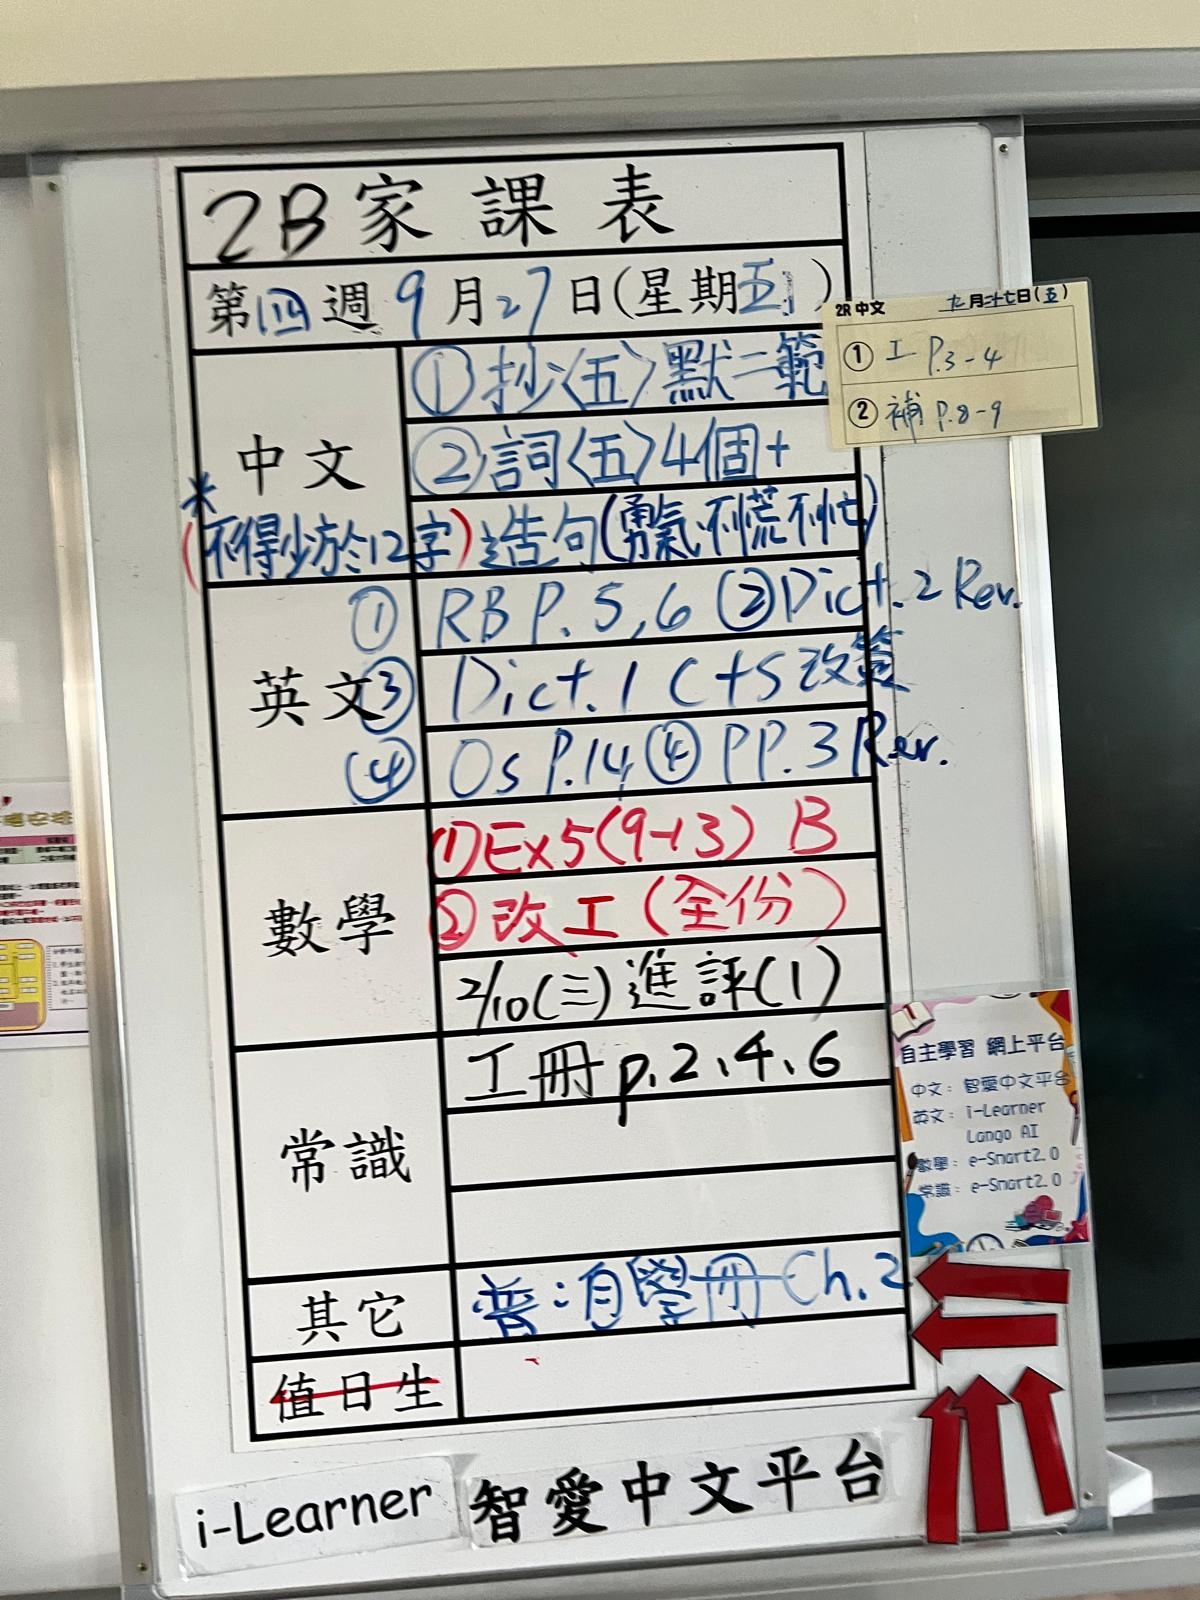 2B家課表
第四週 9月27日(星期五)
中文
①抄〈五〉默二範
②詞〈五〉4個+
*
(不得少於12字)造句(勇氣、不慌不忙)
2R中文 九月廿七日(五)
① 工 P.3-4
② 補 P.8-9
英文
① RB P.5,6 ② Dict.2 Rev.
③ Dict.1 C+S 改簽
④ Os P.14 ④ PP.3 Rev.
數學
①Ex5(9-13) B
②改工(全份)
2/10(三)進評(1)
常識
工冊p.2、4、6
其它
普:自學冊Ch.2
值日生
自主學習 網上平台
中文: 智愛中文平台
英文: i-Learner
Lango AI
數學: e-Smart2.0
常識: e-Smart2.0
i-Learner 智愛中文平台